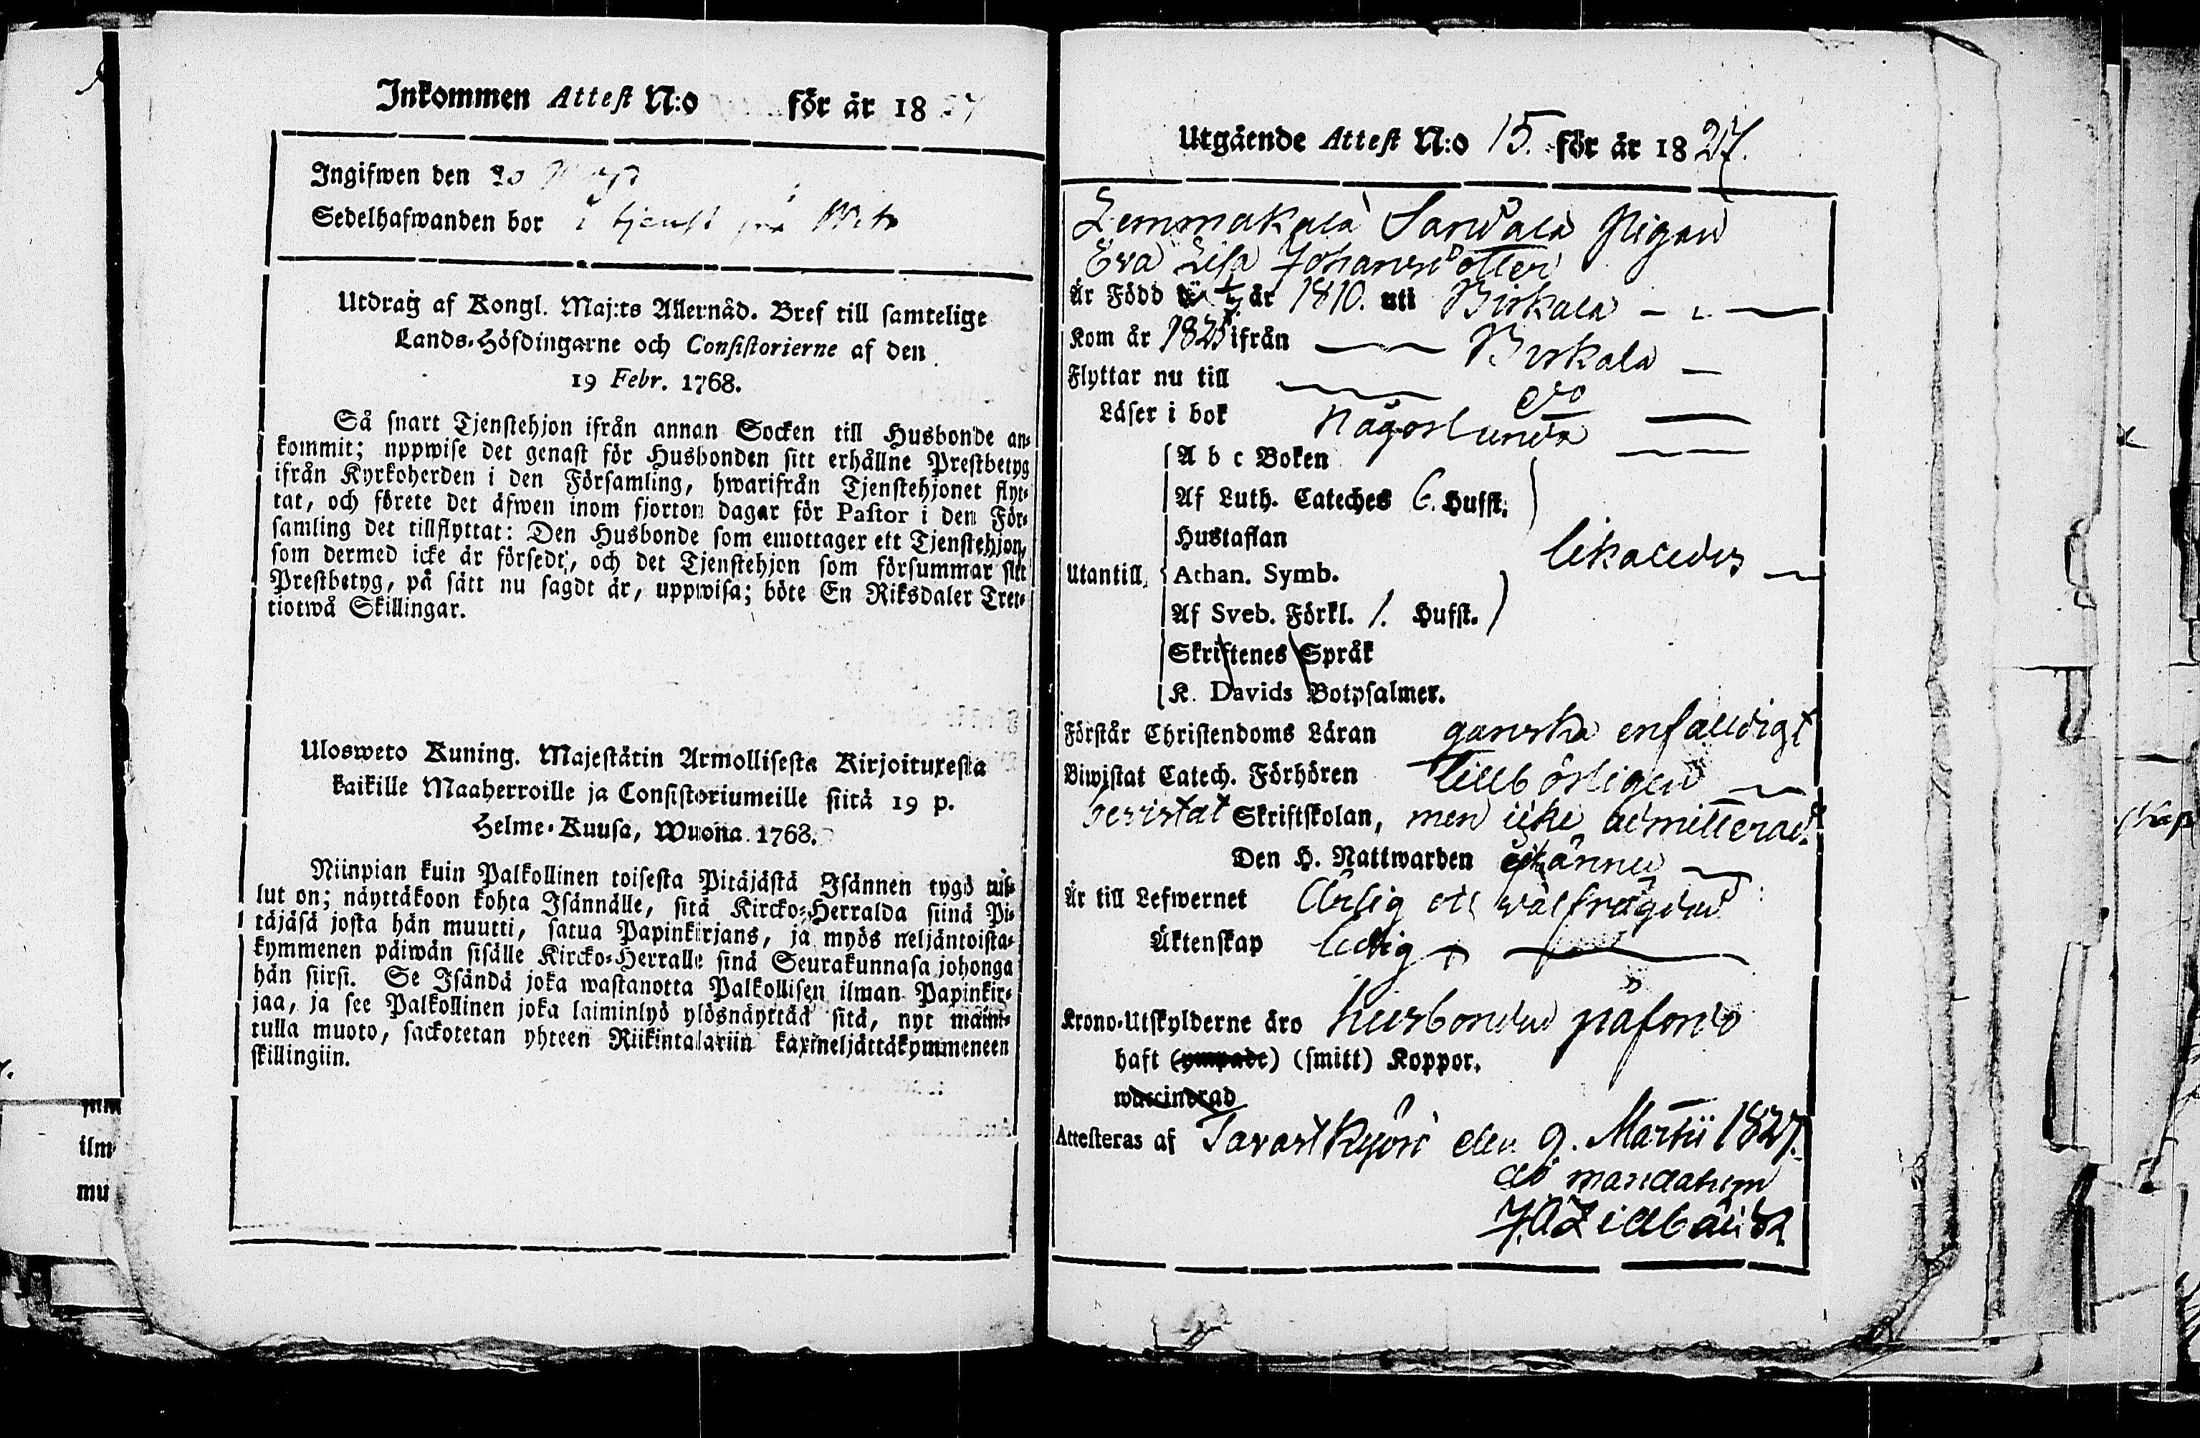 Inkommen Attest N:o för år 18 27
Ingifwen den 20
Sedelhafwanden bor i tjenst på
Utdrag af Kongl. Maj:ts Allernåd. Bref till samtelige
Lands-Höfdingarne och Consistorierne af den
19 Febr. 1768.
Så snart Tjenstehjon ifrån annan Socken till Husbonde an-
kommit; uppwise det genast för Husbonden sitt erhållne Prestbetyg
ifrån Kyrkoherden i den Församling, hwarifrån Tjenstehjonet flyt-
tat, och förete det äfwen inom fjorton dagar för Pastor i den För-
samling det tillflyttat: Den Husbonde som emottager ett Tjenstehjon,
som dermed icke är försedt, och det Tjenstehjon som försummar sitt
Prestbetyg, på sätt nu sagdt är, uppwisa; böte En Riksdaler Tret-
tiotwå Skillingar.
Ulosweto Kuning. Majestätin Armollisesta Kirjoituxesta
kaikille Maaherroille ja Consistoriumeille siitä 19 p.
Helme-Kuusa, Wuonna 1768.
Niinpian kuin Palkollinen toisesta Pitäjästä Isännen tygö tul-
lut on; näyttäkoon kohta Isännälle, sitä Kircko-Herralda siinä Pi-
täjäsä josta hän muutti, saatua Papinkirjans, ja myös neljäntoista-
kymmenen päiwän sisälle Kircko-Herralle sinä Seurakunnasa johonga
hän siirsi. Se Isändä joka wastanotta Palkollisen ilman Papinkir-
jaa, ja see Palkollinen joka laiminlyö ylösnäyttää sitä, nyt maini-
tulla muoto, sackotetan yhteen Riikintalariin kaxineljättäkymmeneen
skillingiin.
Utgående Attest N:o 15. för år 18 27.
Lemmakala Sandala Pigan
Eva Lisa Johansdotter
Är Född år 1810. uti Birkala
Kom år 1825 ifrån Birkala
Flyttar nu till do
Läser i bok någorlunda
A b c Boken
Af Luth. Cateches 6. Hufst.
Hustaflan
Utantill Athan. Symb. likaledes
Af Sveb. Förkl. 1. Hufst.
Skriftenes Språk
K. Davids Botpsalmer.
Förstår Christendoms Läran ganska enfaldigt
Biwistat Catech. Förhören tillbörligen
bevistat Skriftskolan, men icke admitterad.
Den H. Nattwarden
Är till Lefwernet Ärlig och välfrägdad
Äktenskap ledig
Krono-Utskylderne äro husbonden påförd
haft (ympade) (smitt) Koppor.
waccinerad
Attesteras af Tavastkyrö den 9. Martii 1827.
ad mandatum
J.A. Lillbäck